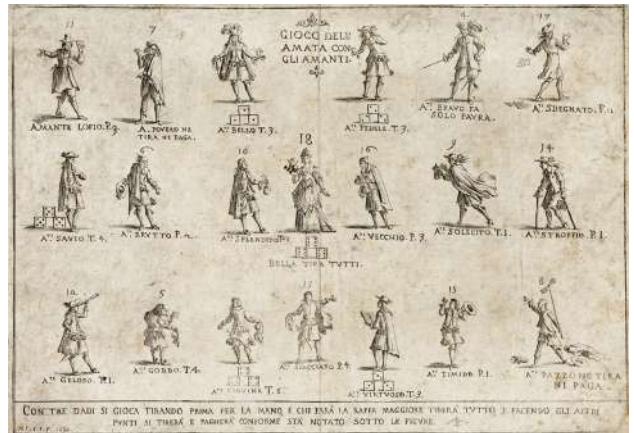 11
7
GIOCO DELL'
AMATA CON
GLI AMANTI.
17
AMANTE LOFIO. P. 3.
A. POVERO NE
TIRA NE PAGA.
A.te BELLO T. 3
A.te FEDELE. T. 3.
A.te BRAVO FA
SOLO PAVRA.
A.te SDEGNATO. P.
16
18
16
14
A.te SAVIO T. 4.
A.te BRVTTO P.
A.te SPLENDIDO
A.te VECCHIO. P. 3.
A.te SOLECITO. T. 1.
A.te STROPPIO. P. 1.
BELLA TIRA TVTTI.
10
5
13
15
8
A.te GELOSO. P. 1.
A.te GOBBO. T. 4
T. 5
A.te SPACCIATO P. 4
A.te VIRTVOSO. T. 3
A.te TIMIDO P. 1.
A.te PAZZO NE TIRA
NE PAGA.
CON TRE DADI SI GIOCA TIRANDO PRIMA PER LA MANO, E CHI FARÀ LA RAFFA MAGGIORE TIRERÀ TVTTO E FACENDO GLI ALTRI
PVNTI SI TIRERÀ E PAGHERÀ CONFORME STÀ NOTATO SOTTO LE FIGVRE.